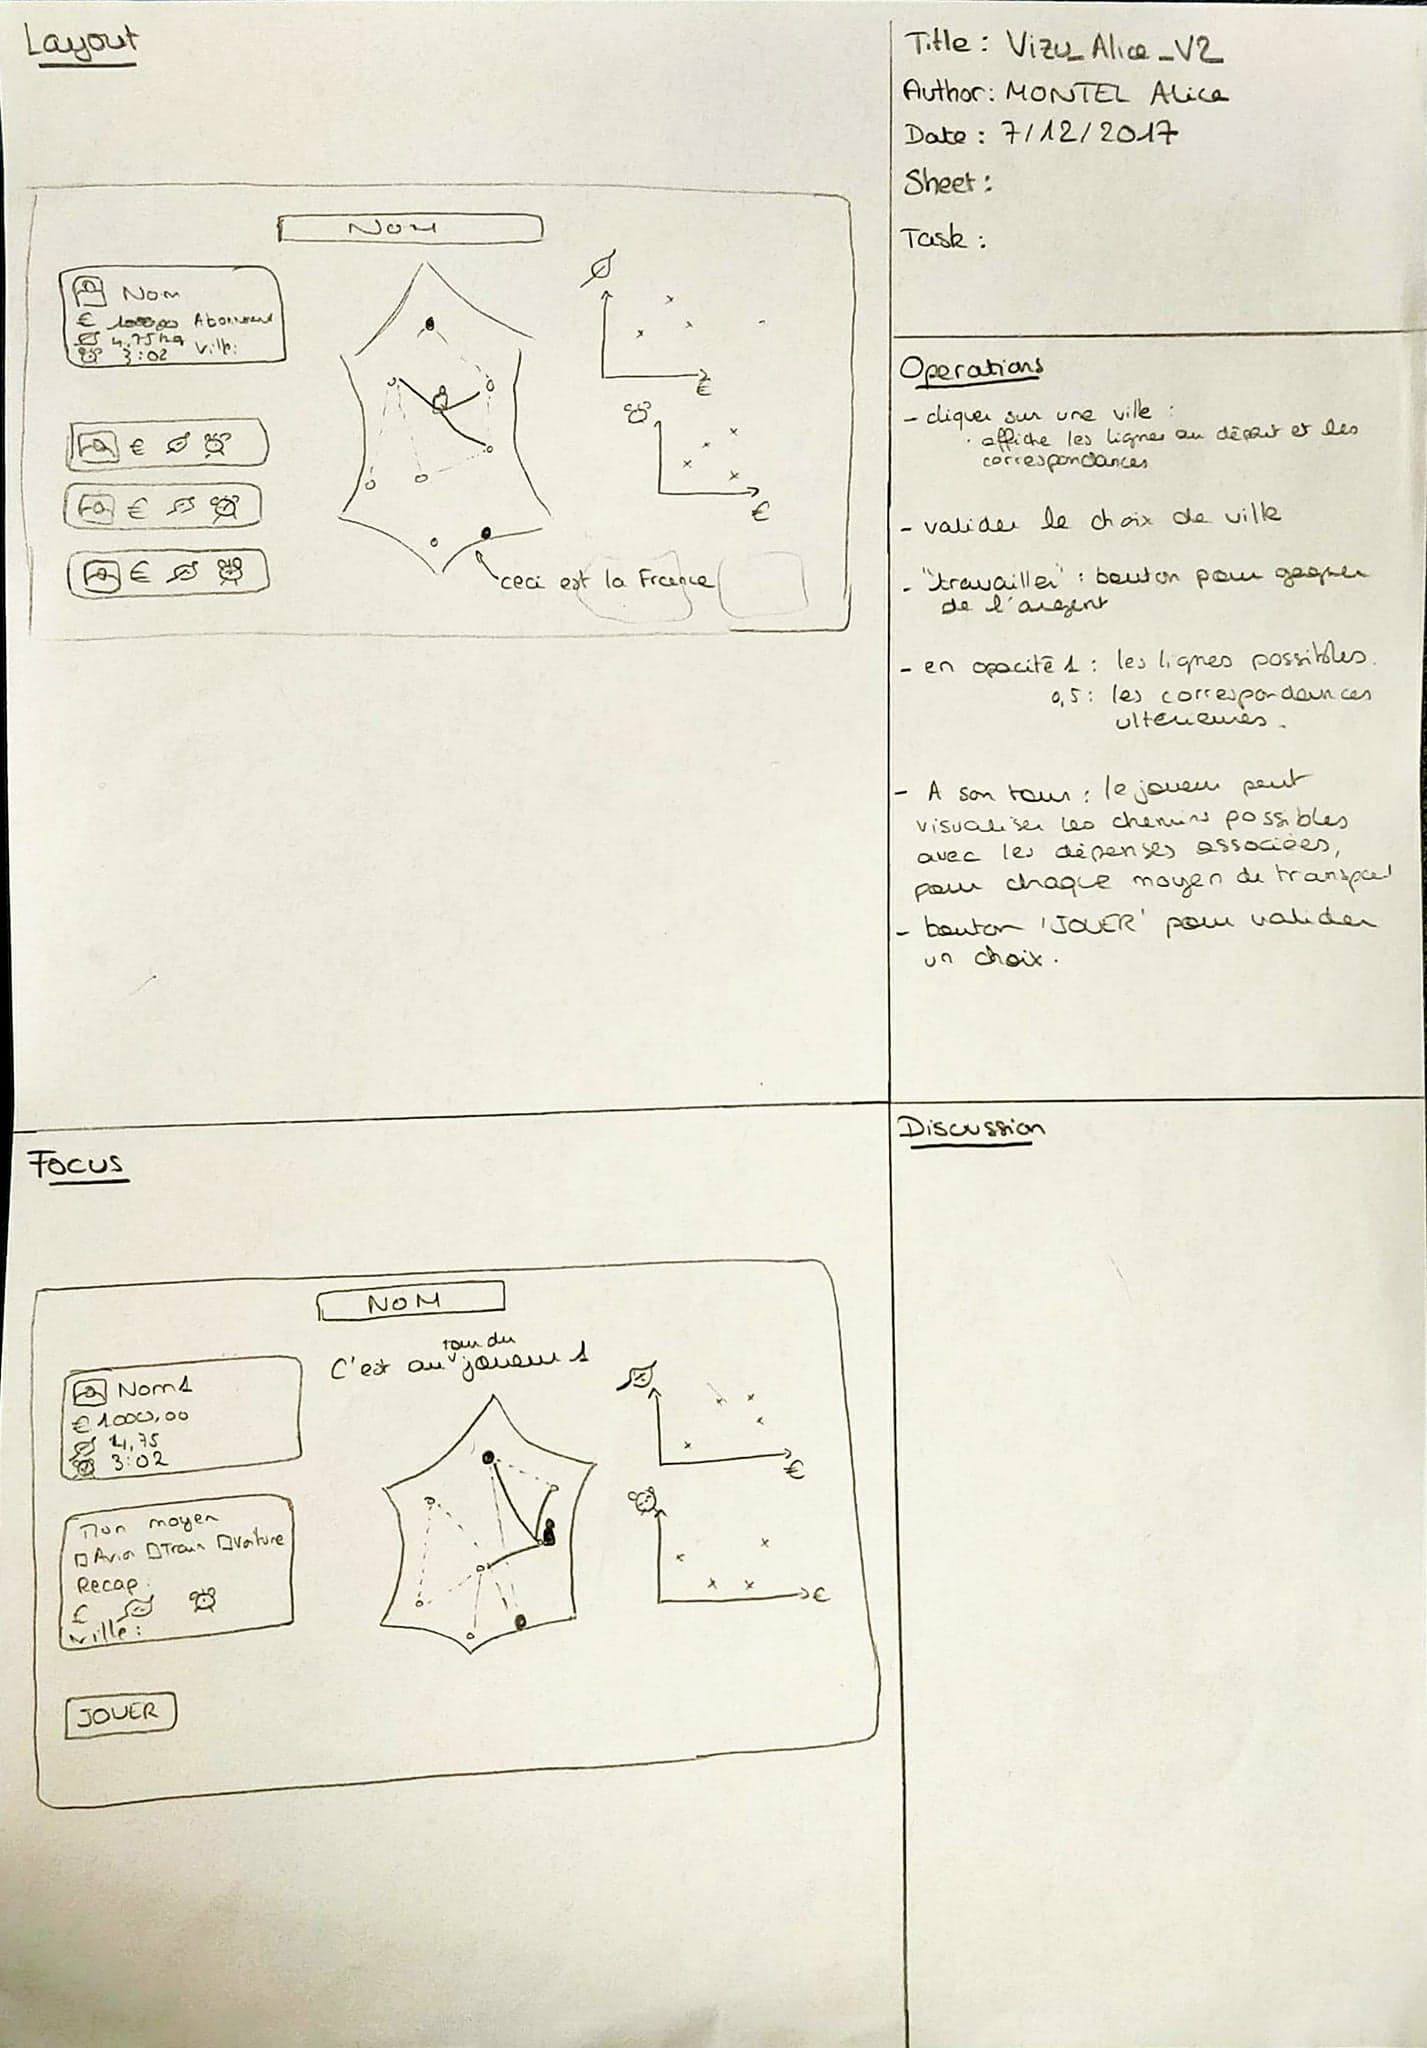 Layout
NOM
Nom
€ Abonnement
4,75 kg
3:02 Ville:
€
€
€
€
€
ceci est la France
Title : Vizu_Alice_V2
Author: MONTEL Alice
Date : 7/12/2017
Sheet :
Task :
Operations
- cliquer sur une ville :
· affiche les lignes au départ et les
correspondances
- valider le choix de ville
- "travailler" : bouton pour gagner
de l'argent
- en opacité 1 : les lignes possibles.
0,5 : les correspondances
ultérieures.
- A son tour : le joueur peut
visualiser les chemins possibles
avec les dépenses associées,
pour chaque moyen de transport
- bouton 'JOUER' pour valider
un choix.
Focus
NOM
C'est au tour du joueur 1
Nom1
€ 1000,00
4,75
3:02
Mon moyen
Avion Train Voiture
Recap:
€
Ville :
JOUER
€
€
Discussion